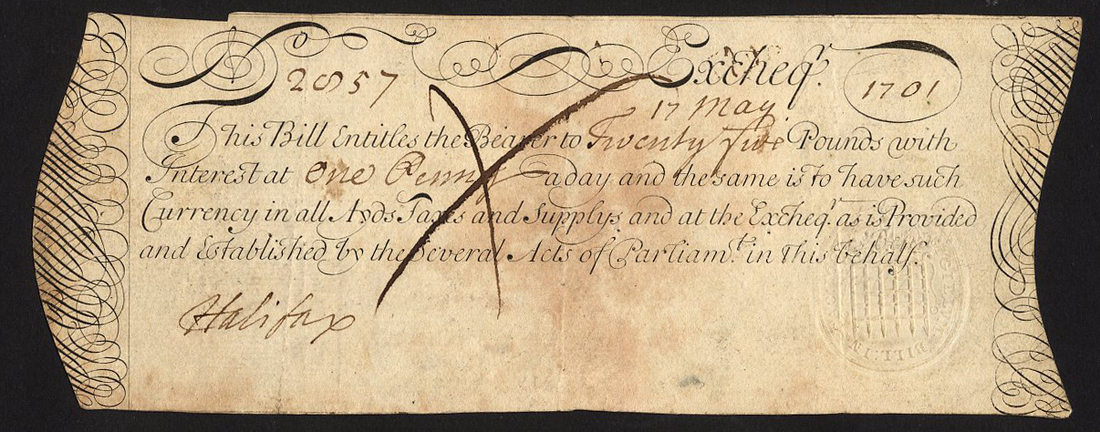 Nº 2857 Excheqr. 1701
17 May
This Bill Entitles the Bearer to Twenty five Pounds with
Interest at One Penny a day and the same is to have such
Currency in all Ayds Taxes and Supplys and at the Excheqr. as is Provided
and Established by the Several Acts of Parliamt. in this behalf.
Halifax